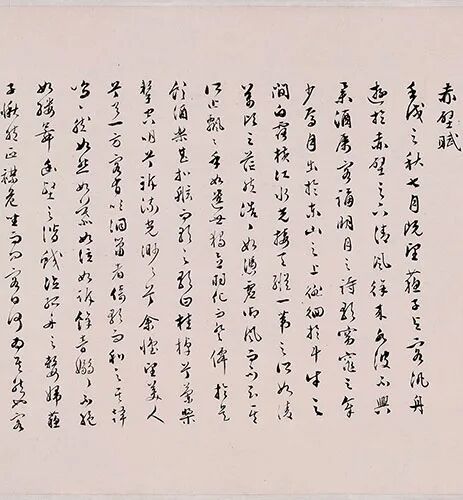 赤壁賦
壬戌之秋七月既望蘇子与客汎舟
遊於赤壁之下清風徐来水波不興
舉酒屬客誦明月之詩歌窈窕之章
少焉月出於東山之上徘徊於斗牛之
間白露橫江水光接天縱一葦之所如凌
萬頃之茫然浩〃乎如馮虛御風而不知其
所止飄〃乎如遺世獨立羽化而登僊於是
飲酒樂甚扣舷而歌之歌曰桂棹兮蘭槳
擊空明兮泝流光渺〃兮余懷望美人
兮天一方客有吹洞簫者倚歌而和之其聲
嗚〃然如怨如慕如泣如訴餘音嫋〃不絕
如縷舞幽壑之潛蛟泣孤舟之嫠婦蘇
子愀然正襟危坐而問客曰何為其然也客